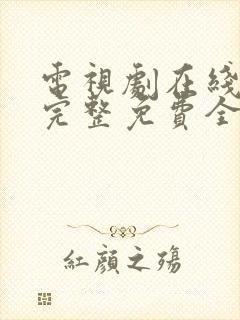 電視劇在綫
完整免費全
紅顏之殤